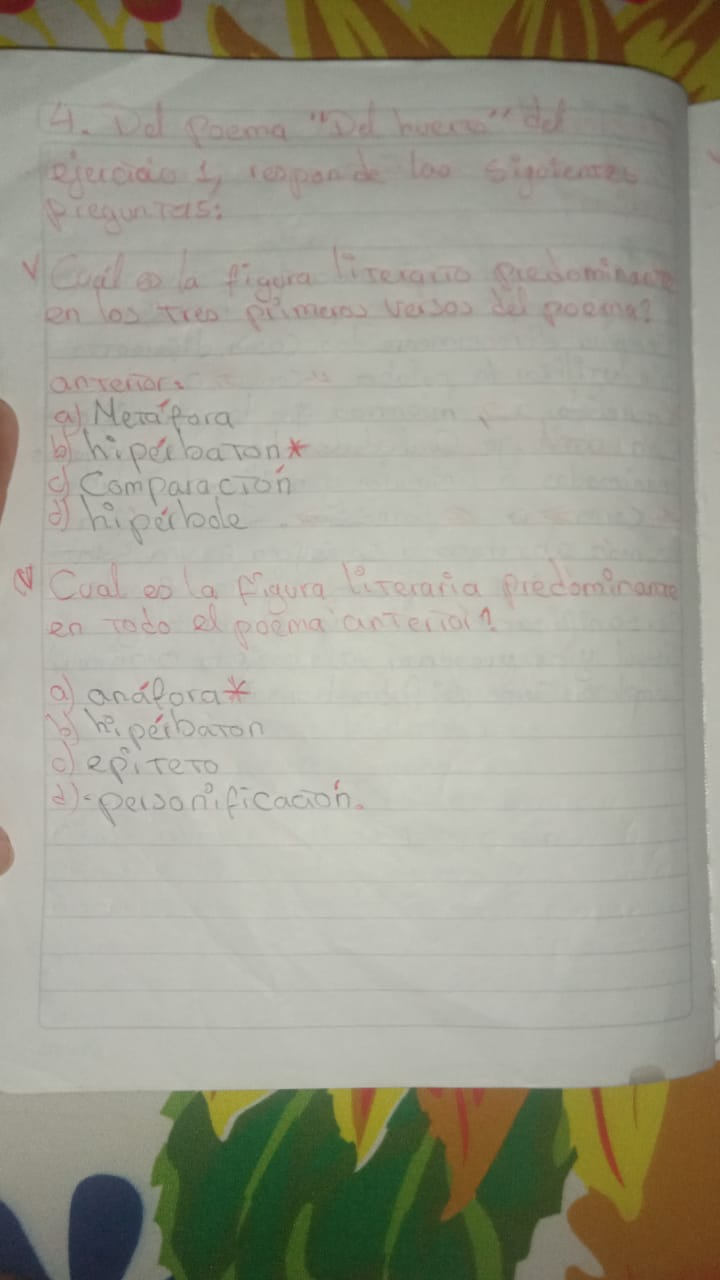 4. Del poema "Del huerto" del
ejercicio 1, responde las siguientes
preguntas:
Cuál es la figura literaria predominante
en los tres primeros versos del poema?
anterior:
a) Metáfora
b) hipérbaton*
c) Comparación
d) hipérbole
Cual es la figura literaria predominante
en todo el poema anterior?
a) anáfora*
b) hipérbaton
c) epíteto
d)-personificación.